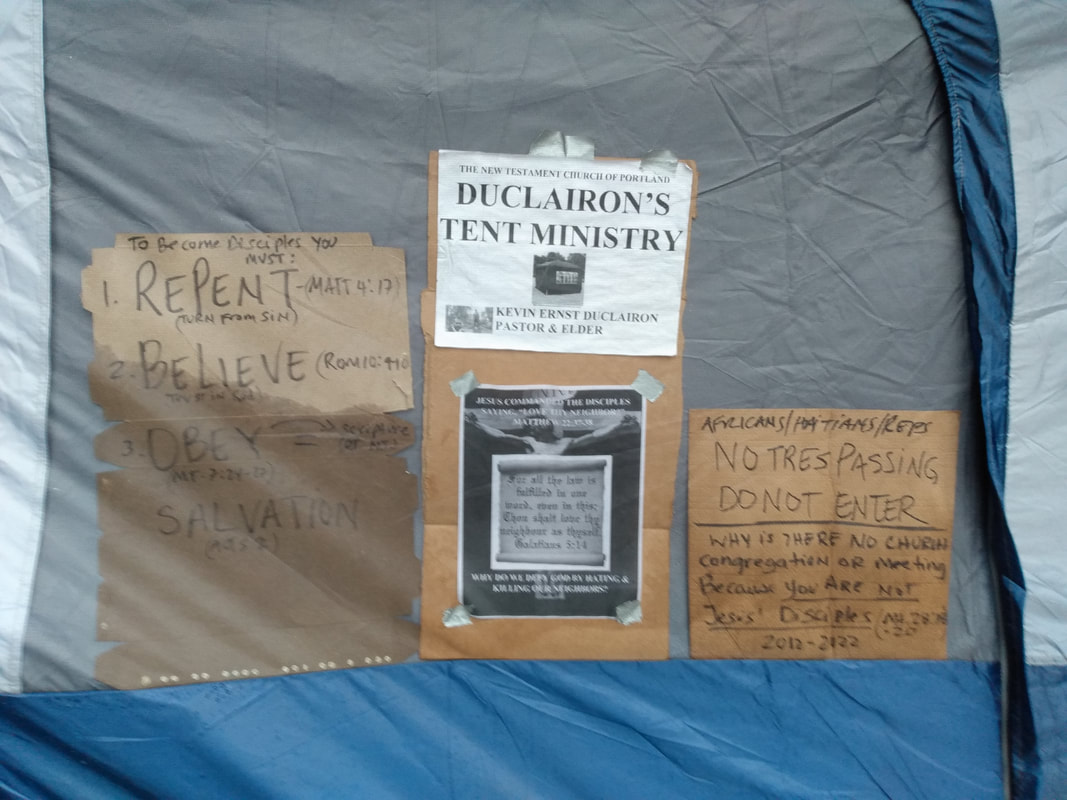 To Become Disciples You
MUST:
1. REPENT - (MATT 4:17)
(TURN FROM SIN)
2. BELIEVE (ROM 10:
3. OBEY
SALVATION
THE NEW TESTAMENT CHURCH OF PORTLAND
DUCLAIRON'S
TENT MINISTRY
KEVIN ERNST DUCLAIRON
PASTOR & ELDER
JESUS COMMANDED THE DISCIPLES
SAYING, "LOVE THY NEIGHBOR!"
MATTHEW 22:37-38
For all the law is
fulfilled in one
word, even in this;
Thou shalt love thy
neighbour as thyself.
Galatians 5:14
WHY DO WE DEFY GOD BY HATING &
KILLING OUR NEIGHBORS?
AFRICANS/HAITIANS/
NO TRESPASSING
DO NOT ENTER
WHY IS THERE NO CHURCH
congregation OR Meeting
Because YOU ARE NOT
Jesus' Disciples
2012-2022